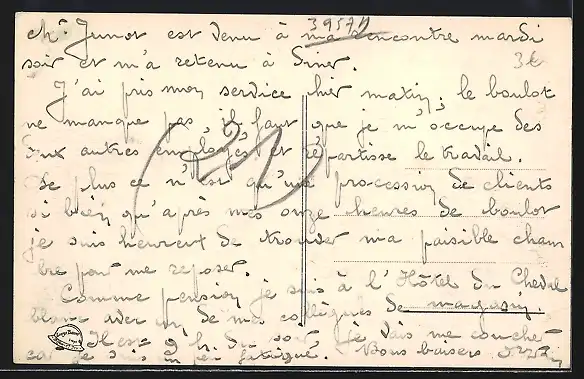 39571
Chr Junot est venu à ma rencontre mardi
soir et m'a retenu à diner.
3€
J'ai pris mon service hier matin. Le boulot
ne manque pas, il faut que je m'occupe des
deux autres employés et répartisse le travail.
(21)
De plus ce n'est qu'une procession de clients
si bien qu'après mes onze heures de boulot
je suis heureux de trouver ma paisible cham
bre pour me reposer.
Comme pension je suis à l'Hôtel du Cheval
blanc avec un de mes collègues de magasin.
Il est 9 h. du soir, je vais me coucher
car je suis un peu fatigué. Bons baisers